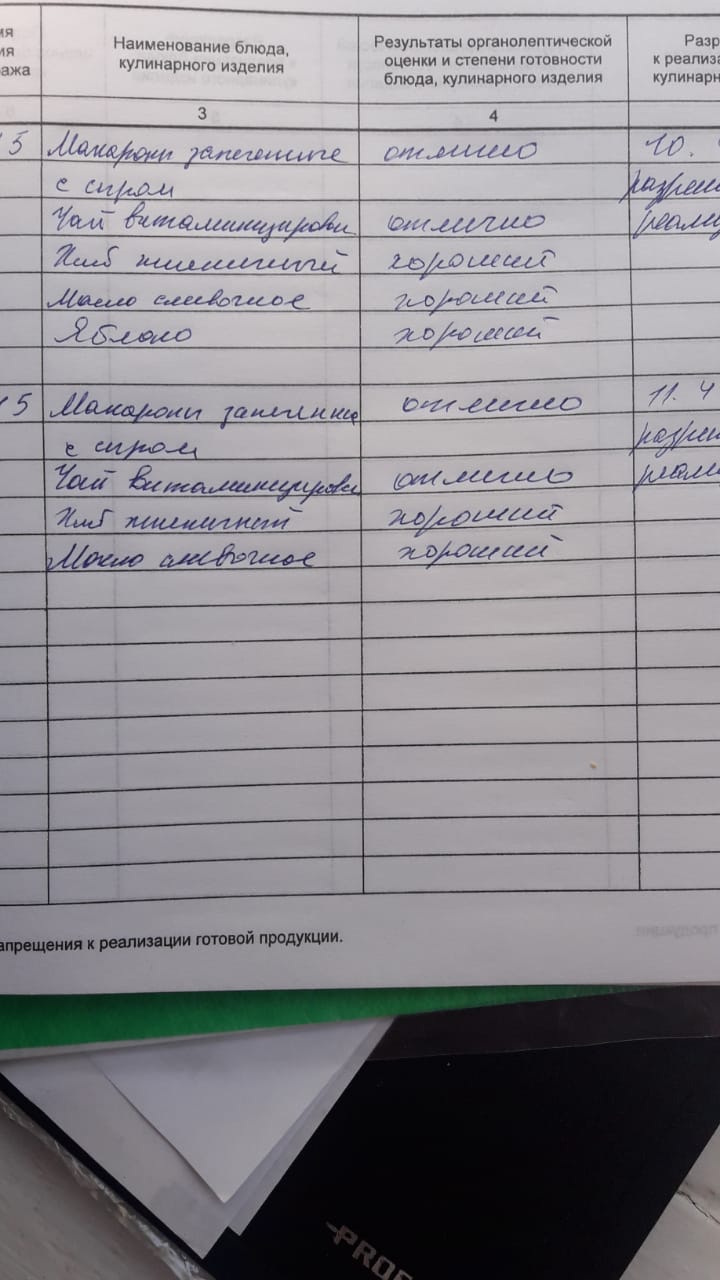 ия
ия
ража
Наименование блюда,
кулинарного изделия
Результаты органолептической
оценки и степени готовности
блюда, кулинарного изделия
Разр
к реализа
кулинарн
3
4
5 Макароны запеченные отлично 10.
с сыром разреш
Чай витаминизирован отлично реализ
Хлеб пшеничный хороший
Масло сливочное хороший
Яблоко хороший
5 Макароны запеченны отлично 11. 4
с сыром разреш
Чай витаминизирован отлично реализ
Хлеб пшеничный хороший
Масло сливочное хороший
апрещения к реализации готовой продукции.
PROF